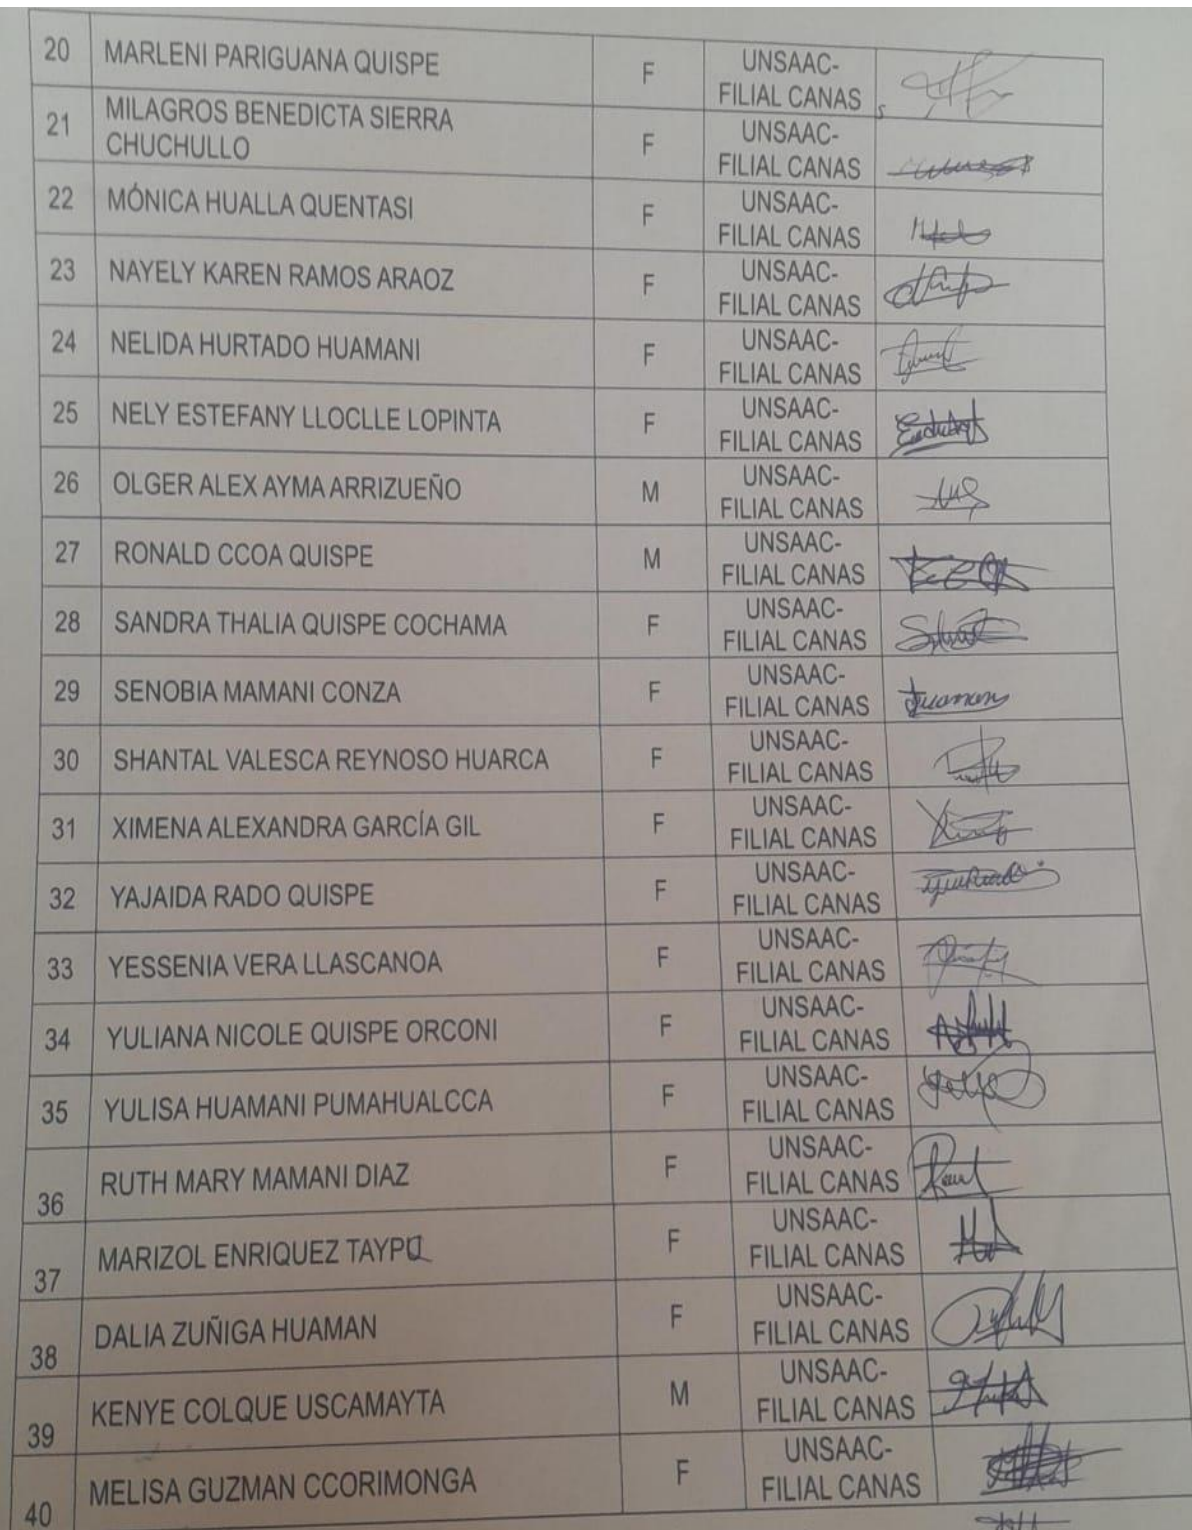 20 MARLENI PARIGUANA QUISPE F UNSAAC-
FILIAL CANAS
21 MILAGROS BENEDICTA SIERRA
CHUCHULLO F UNSAAC-
FILIAL CANAS
22 MÓNICA HUALLA QUENTASI F UNSAAC-
FILIAL CANAS
23 NAYELY KAREN RAMOS ARAOZ F UNSAAC-
FILIAL CANAS
24 NELIDA HURTADO HUAMANI F UNSAAC-
FILIAL CANAS
25 NELY ESTEFANY LLOCLLE LOPINTA F UNSAAC-
FILIAL CANAS
26 OLGER ALEX AYMA ARRIZUEÑO M UNSAAC-
FILIAL CANAS
27 RONALD CCOA QUISPE M UNSAAC-
FILIAL CANAS
28 SANDRA THALIA QUISPE COCHAMA F UNSAAC-
FILIAL CANAS
29 SENOBIA MAMANI CONZA F UNSAAC-
FILIAL CANAS
30 SHANTAL VALESCA REYNOSO HUARCA F UNSAAC-
FILIAL CANAS
31 XIMENA ALEXANDRA GARCÍA GIL F UNSAAC-
FILIAL CANAS
32 YAJAIDA RADO QUISPE F UNSAAC-
FILIAL CANAS
33 YESSENIA VERA LLASCANOA F UNSAAC-
FILIAL CANAS
34 YULIANA NICOLE QUISPE ORCONI F UNSAAC-
FILIAL CANAS
35 YULISA HUAMANI PUMAHUALCCA F UNSAAC-
FILIAL CANAS
36 RUTH MARY MAMANI DIAZ F UNSAAC-
FILIAL CANAS
37 MARIZOL ENRIQUEZ F UNSAAC-
FILIAL CANAS
38 DALIA ZUÑIGA HUAMAN F UNSAAC-
FILIAL CANAS
39 KENYE COLQUE USCAMAYTA M UNSAAC-
FILIAL CANAS
40 MELISA GUZMAN CCORIMONGA F UNSAAC-
FILIAL CANAS